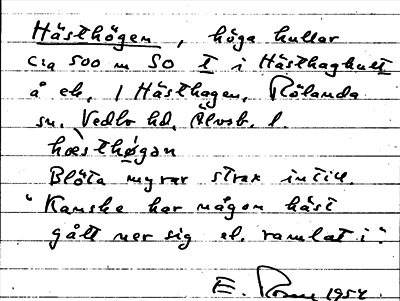 Hästhögen, höga kullar
c:a 500 m SO T i Hästhaghult
å ek. / Hästhagen, Rölanda
sn. Vedbo hd, Älvsb. l.
hæsthøgan
Blöta myrar strax intill.
"Kanske har någon häst
gått ner sig el. ramlat i."
E. 1954